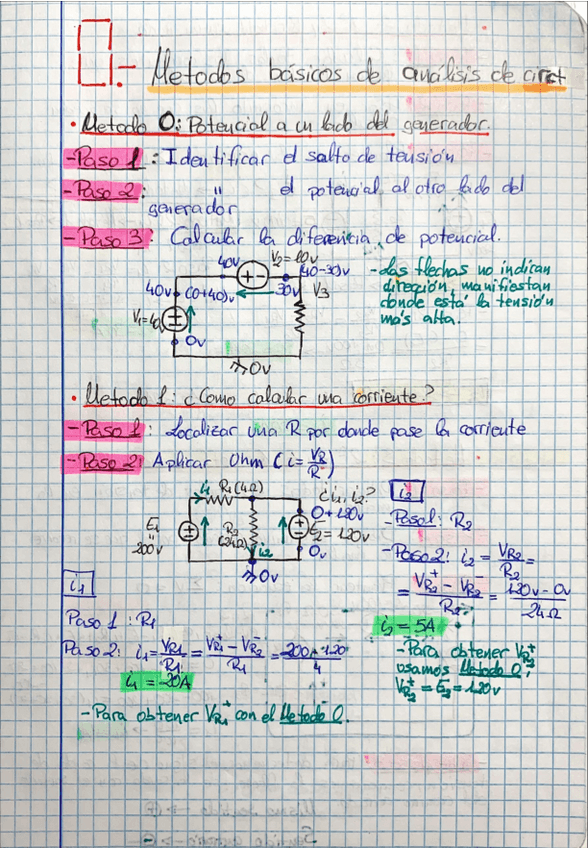 0.- Metodos básicos de análisis de circt
• Metodo 0: Potencial a un lado del generador.
-Paso 1: Identificar el salto de tensión
-Paso 2: " el potencial al otro lado del
generador
-Paso 3: Calcular la diferencia de potencial.
40v V2=10v
(40-30)v
40v (0+40)v 30v V3
V1=40
0v
0v
-Las flechas no indican
dirección, manifiestan
donde está la tensión
más alta.
• Metodo 1: ¿Como calcular una corriente?
-Paso 1: Localizar una R por donde pase la corriente
-Paso 2: Aplicar Ohm (i=VR/R)
i1 R1(4Ω) ¿i1,i2?
0+120v
E1
"
200v
R2
(24Ω)
i2
E2=120v
0v
0v
i1
Paso 1: R1
Paso 2: i1=VR1/R1=VR1+-VR2-/R1=200-120/4
i1=20A
-Para obtener VR1+ con el Metodo 0.
i2
-Paso1: R2
-Paso2: i2=VR2/R2=
=VR2+-VR2-/R2=120v-0v/24Ω
i2=5A
-Para obtener VR2+
usamos Metodo 0;
VR2+=E2=120v